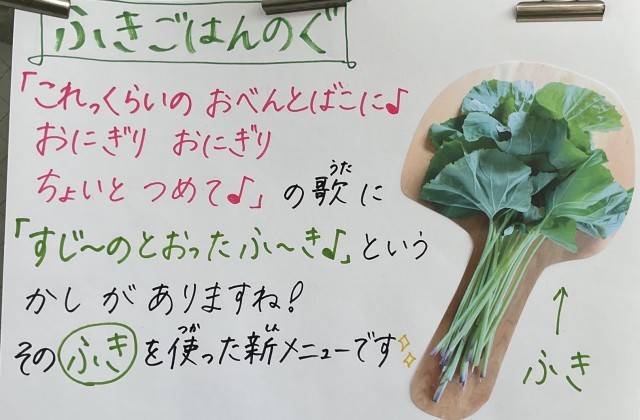 ふきごはんのぐ
「これっくらいの おべんとばこに♪
おにぎり おにぎり
ちょいと つめて♪」の歌に
うた
「すじ〜のとおったふ〜き♪」という
かしがありますね!
そのふきを使った新メニューです✨
つか
しん
↑
ふき